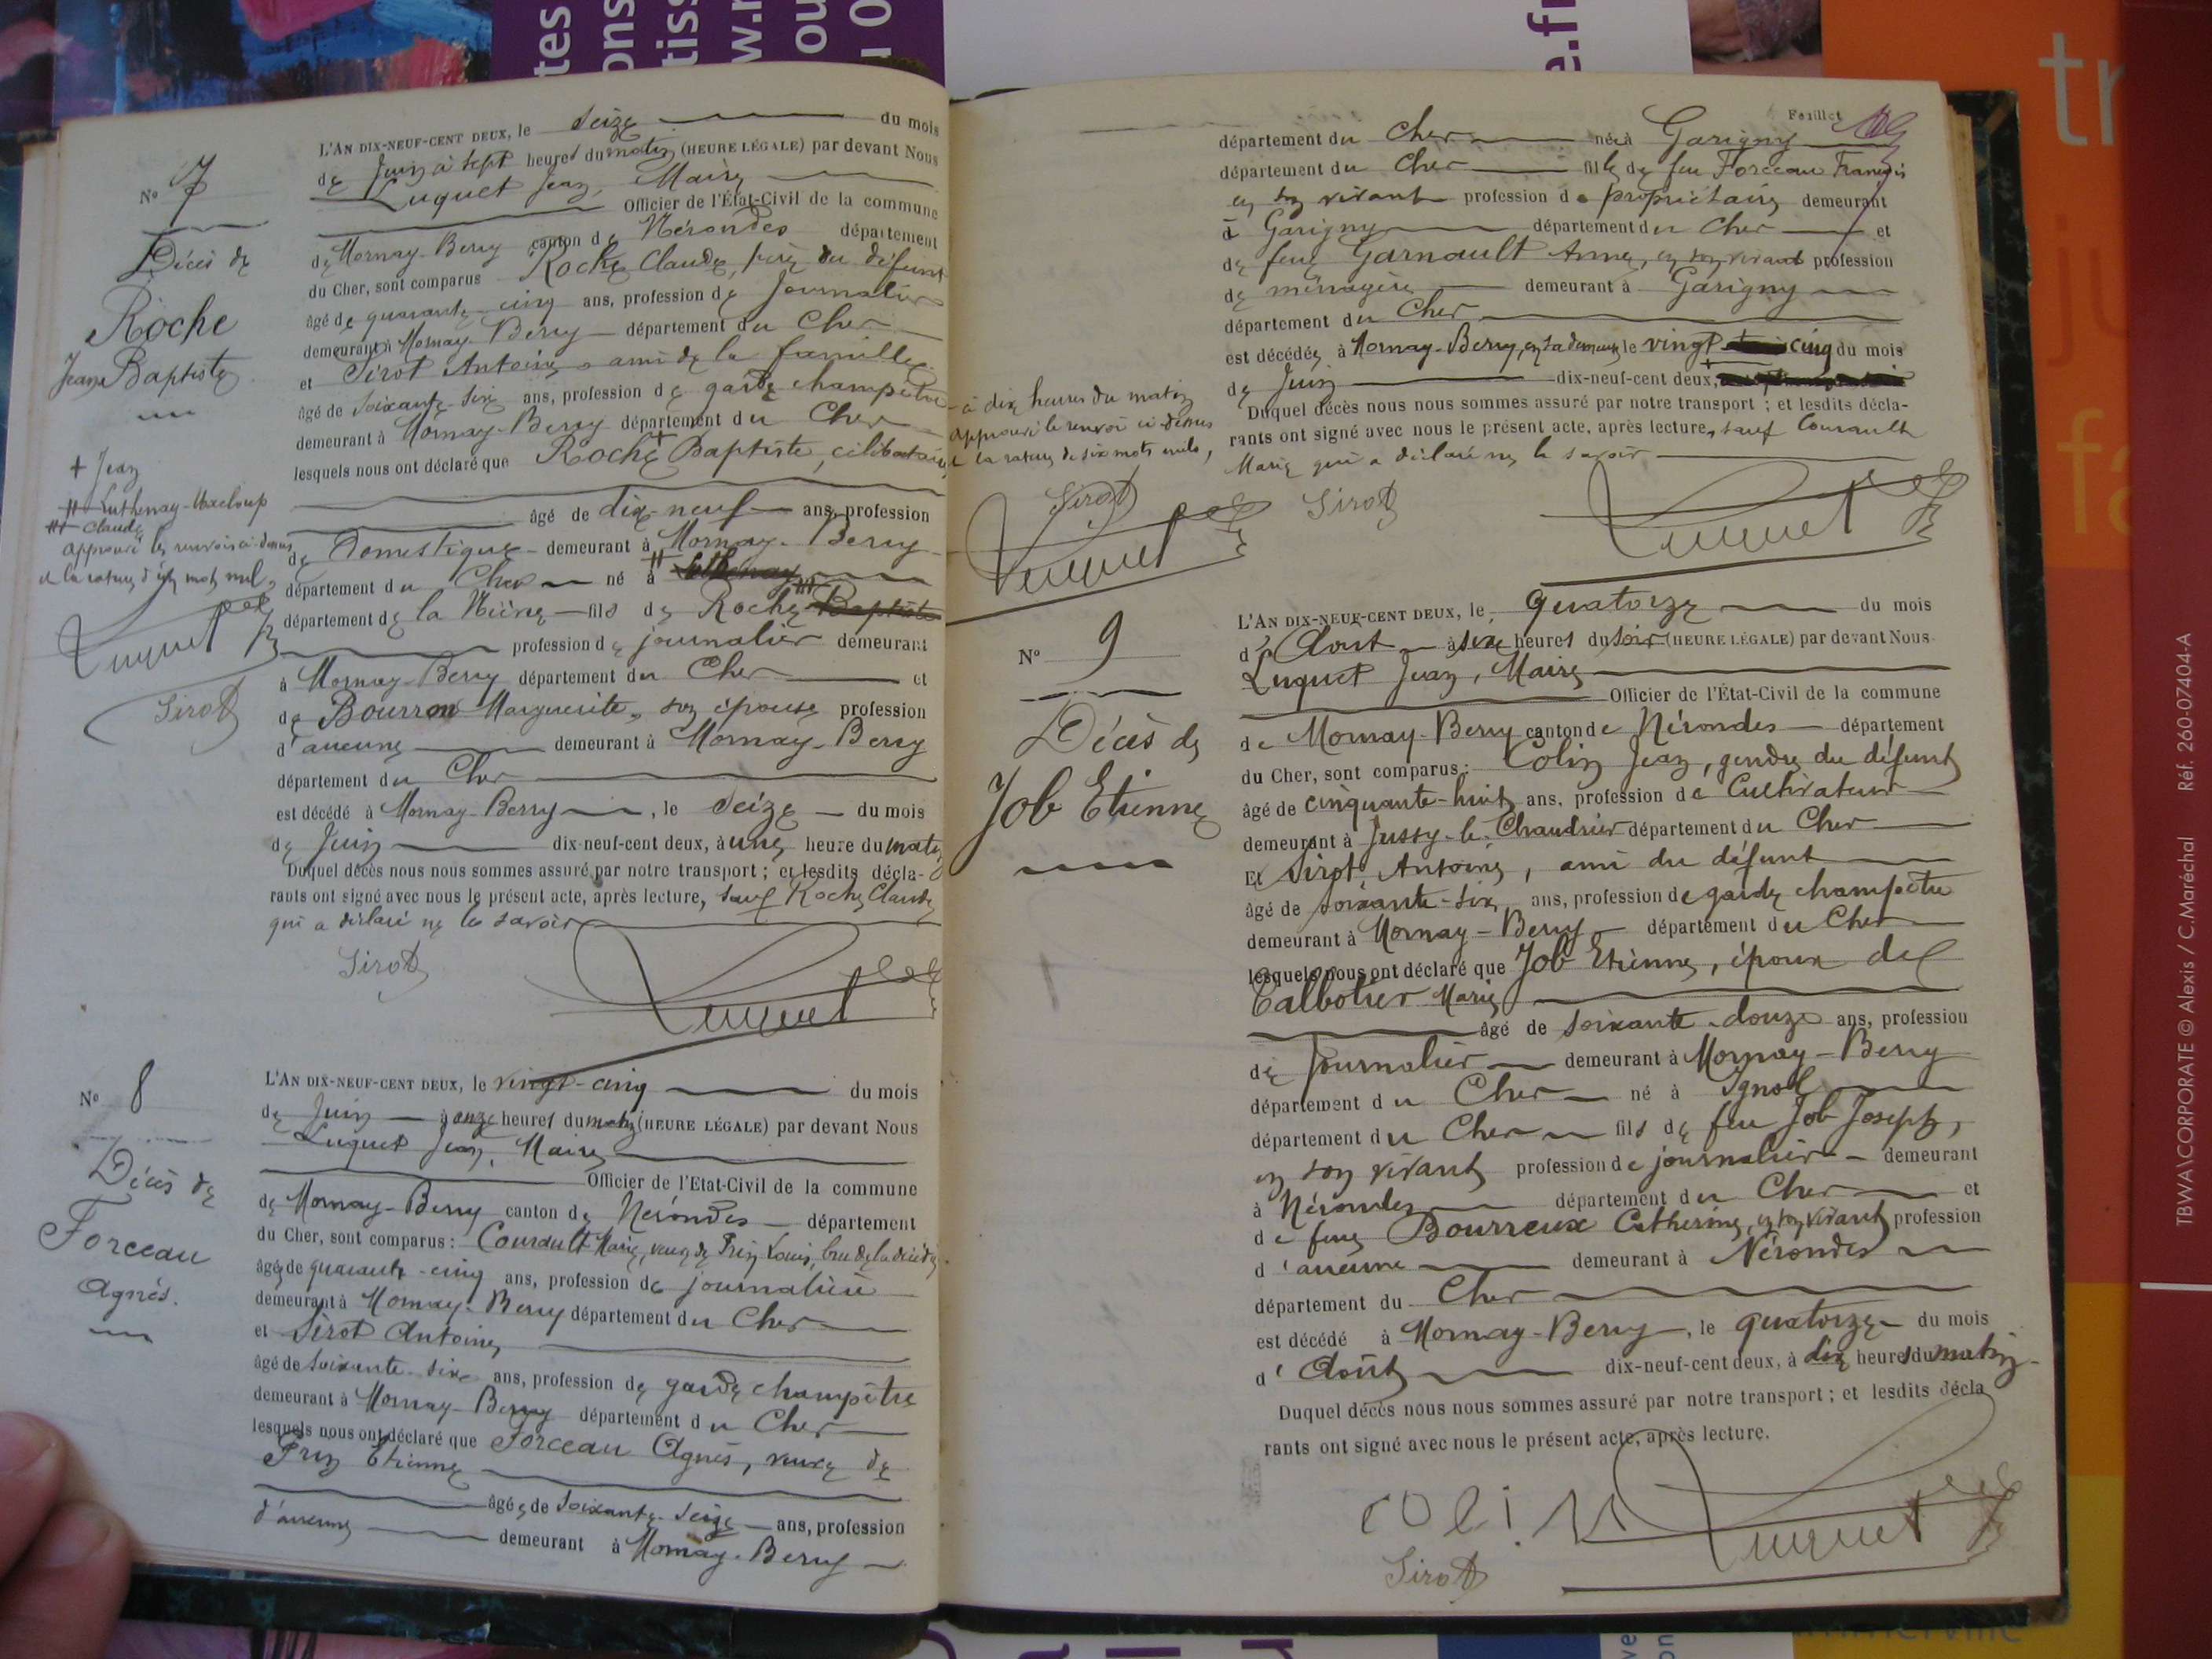 N° 7
Décès de
Roche
Jean Baptiste
+ Jean
++ Luthenay-Uxeloup
+++ Claude
approuvé les renvois ci-dessus
et la rature d'un mot nul.
Luquet
Sirot
L'AN DIX-NEUF-CENT DEUX, le seize du mois
de Juin à sept heures du matin (HEURE LÉGALE) par devant Nous
Luquet Jean, Maire
Officier de l'État-Civil de la commune
de Mornay-Berry canton de Nérondes département
du Cher, sont comparus Roche Claude, père du défunt
âgé de quarante-cinq ans, profession de Journalier
demeurant à Mornay-Berry département du Cher
et Sirot Antoine, ami de la famille
âgé de soixante-six ans, profession de garde champêtre
demeurant à Mornay-Berry département du Cher
lesquels nous ont déclaré que Roche + Baptiste, célibataire,
âgé de dix-neuf ans, profession
de Domestique demeurant à Mornay-Berry
département du Cher né à ++ Luthenay
département de la Nièvre fils de Roche +++ Baptiste
profession de journalier demeurant
à Mornay-Berry département du Cher et
de Bourron Marguerite, son épouse profession
d'aucune demeurant à Mornay-Berry
département du Cher
est décédé à Mornay-Berry, le seize du mois
de Juin dix-neuf-cent deux, à une heure du matin
Duquel décès nous nous sommes assuré par notre transport ; et lesdits décla-
rants ont signé avec nous le présent acte, après lecture, sauf Roche Claude
qui a déclaré ne le savoir
Sirot
Luquet
N° 8
Décès de
Forceau
Agnès.
L'AN DIX-NEUF-CENT DEUX, le vingt-cinq du mois
de Juin à onze heures du matin (HEURE LÉGALE) par devant Nous
Luquet Jean, Maire
Officier de l'Etat-Civil de la commune
de Mornay-Berry canton de Nérondes département
du Cher, sont comparus : Courault Marie, veuve de Prin Louis, bru de la décédée
âgée de quarante-cinq ans, profession de journalière
demeurant à Mornay-Berry département du Cher
et Sirot Antoine,
âgé de soixante-six ans, profession de garde champêtre
demeurant à Mornay-Berry département du Cher
lesquels nous ont déclaré que Forceau Agnès, veuve de
Prin Etienne
âgée de soixante-seize ans, profession
d'aucune demeurant à Mornay-Berry
Feuillet
département du Cher née à Garigny
département du Cher fille de feu Forceau François
en son vivant profession de propriétaire demeurant
à Garigny département du Cher et
de feue Garnault Anne, en son vivant profession
de ménagère demeurant à Garigny
département du Cher
est décédée à Mornay-Berry, en sa demeure le vingt cinq du mois
de Juin dix-neuf-cent deux, +
Duquel décès nous nous sommes assuré par notre transport ; et lesdits décla-
rants ont signé avec nous le présent acte, après lecture, sauf Courault
Marie qui a déclaré ne le savoir
à dix heures du matin
approuvé le renvoi ci-dessus
et la rature de six mots nuls,
Sirot
Luquet
Sirot
Luquet
N° 9
Décès de
Job Etienne
L'AN DIX-NEUF-CENT DEUX, le quatorze du mois
d'Août à six heures du soir (HEURE LÉGALE) par devant Nous
Luquet Jean, Maire
Officier de l'État-Civil de la commune
de Mornay-Berry canton de Nérondes département
du Cher, sont comparus : Colin Jean, gendre du défunt
âgé de cinquante-huit ans, profession de Cultivateur
demeurant à Jussy-le-Chaudrier département du Cher
Et Sirot Antoine, ami du défunt
âgé de soixante-six ans, profession de garde champêtre
demeurant à Mornay-Berry département du Cher
lesquels nous ont déclaré que Job Etienne, époux de
Talbotier Marie
âgé de soixante-douze ans, profession
de Journalier demeurant à Mornay-Berry
département du Cher né à Ignol
département du Cher fils de feu Job Joseph,
en son vivant profession de journalier demeurant
à Nérondes département du Cher et
de feue Bourreux Catherine, en son vivant profession
d'aucune demeurant à Nérondes
département du Cher
est décédé à Mornay-Berry, le quatorze du mois
d'Août dix-neuf-cent deux, à dix heures du matin
Duquel décès nous nous sommes assuré par notre transport ; et lesdits décla
rants ont signé avec nous le présent acte, après lecture.
COliN
Luquet
Sirot
TBWA\CORPORATE © Alexis / C.Maréchal Réf. 260-07404-A